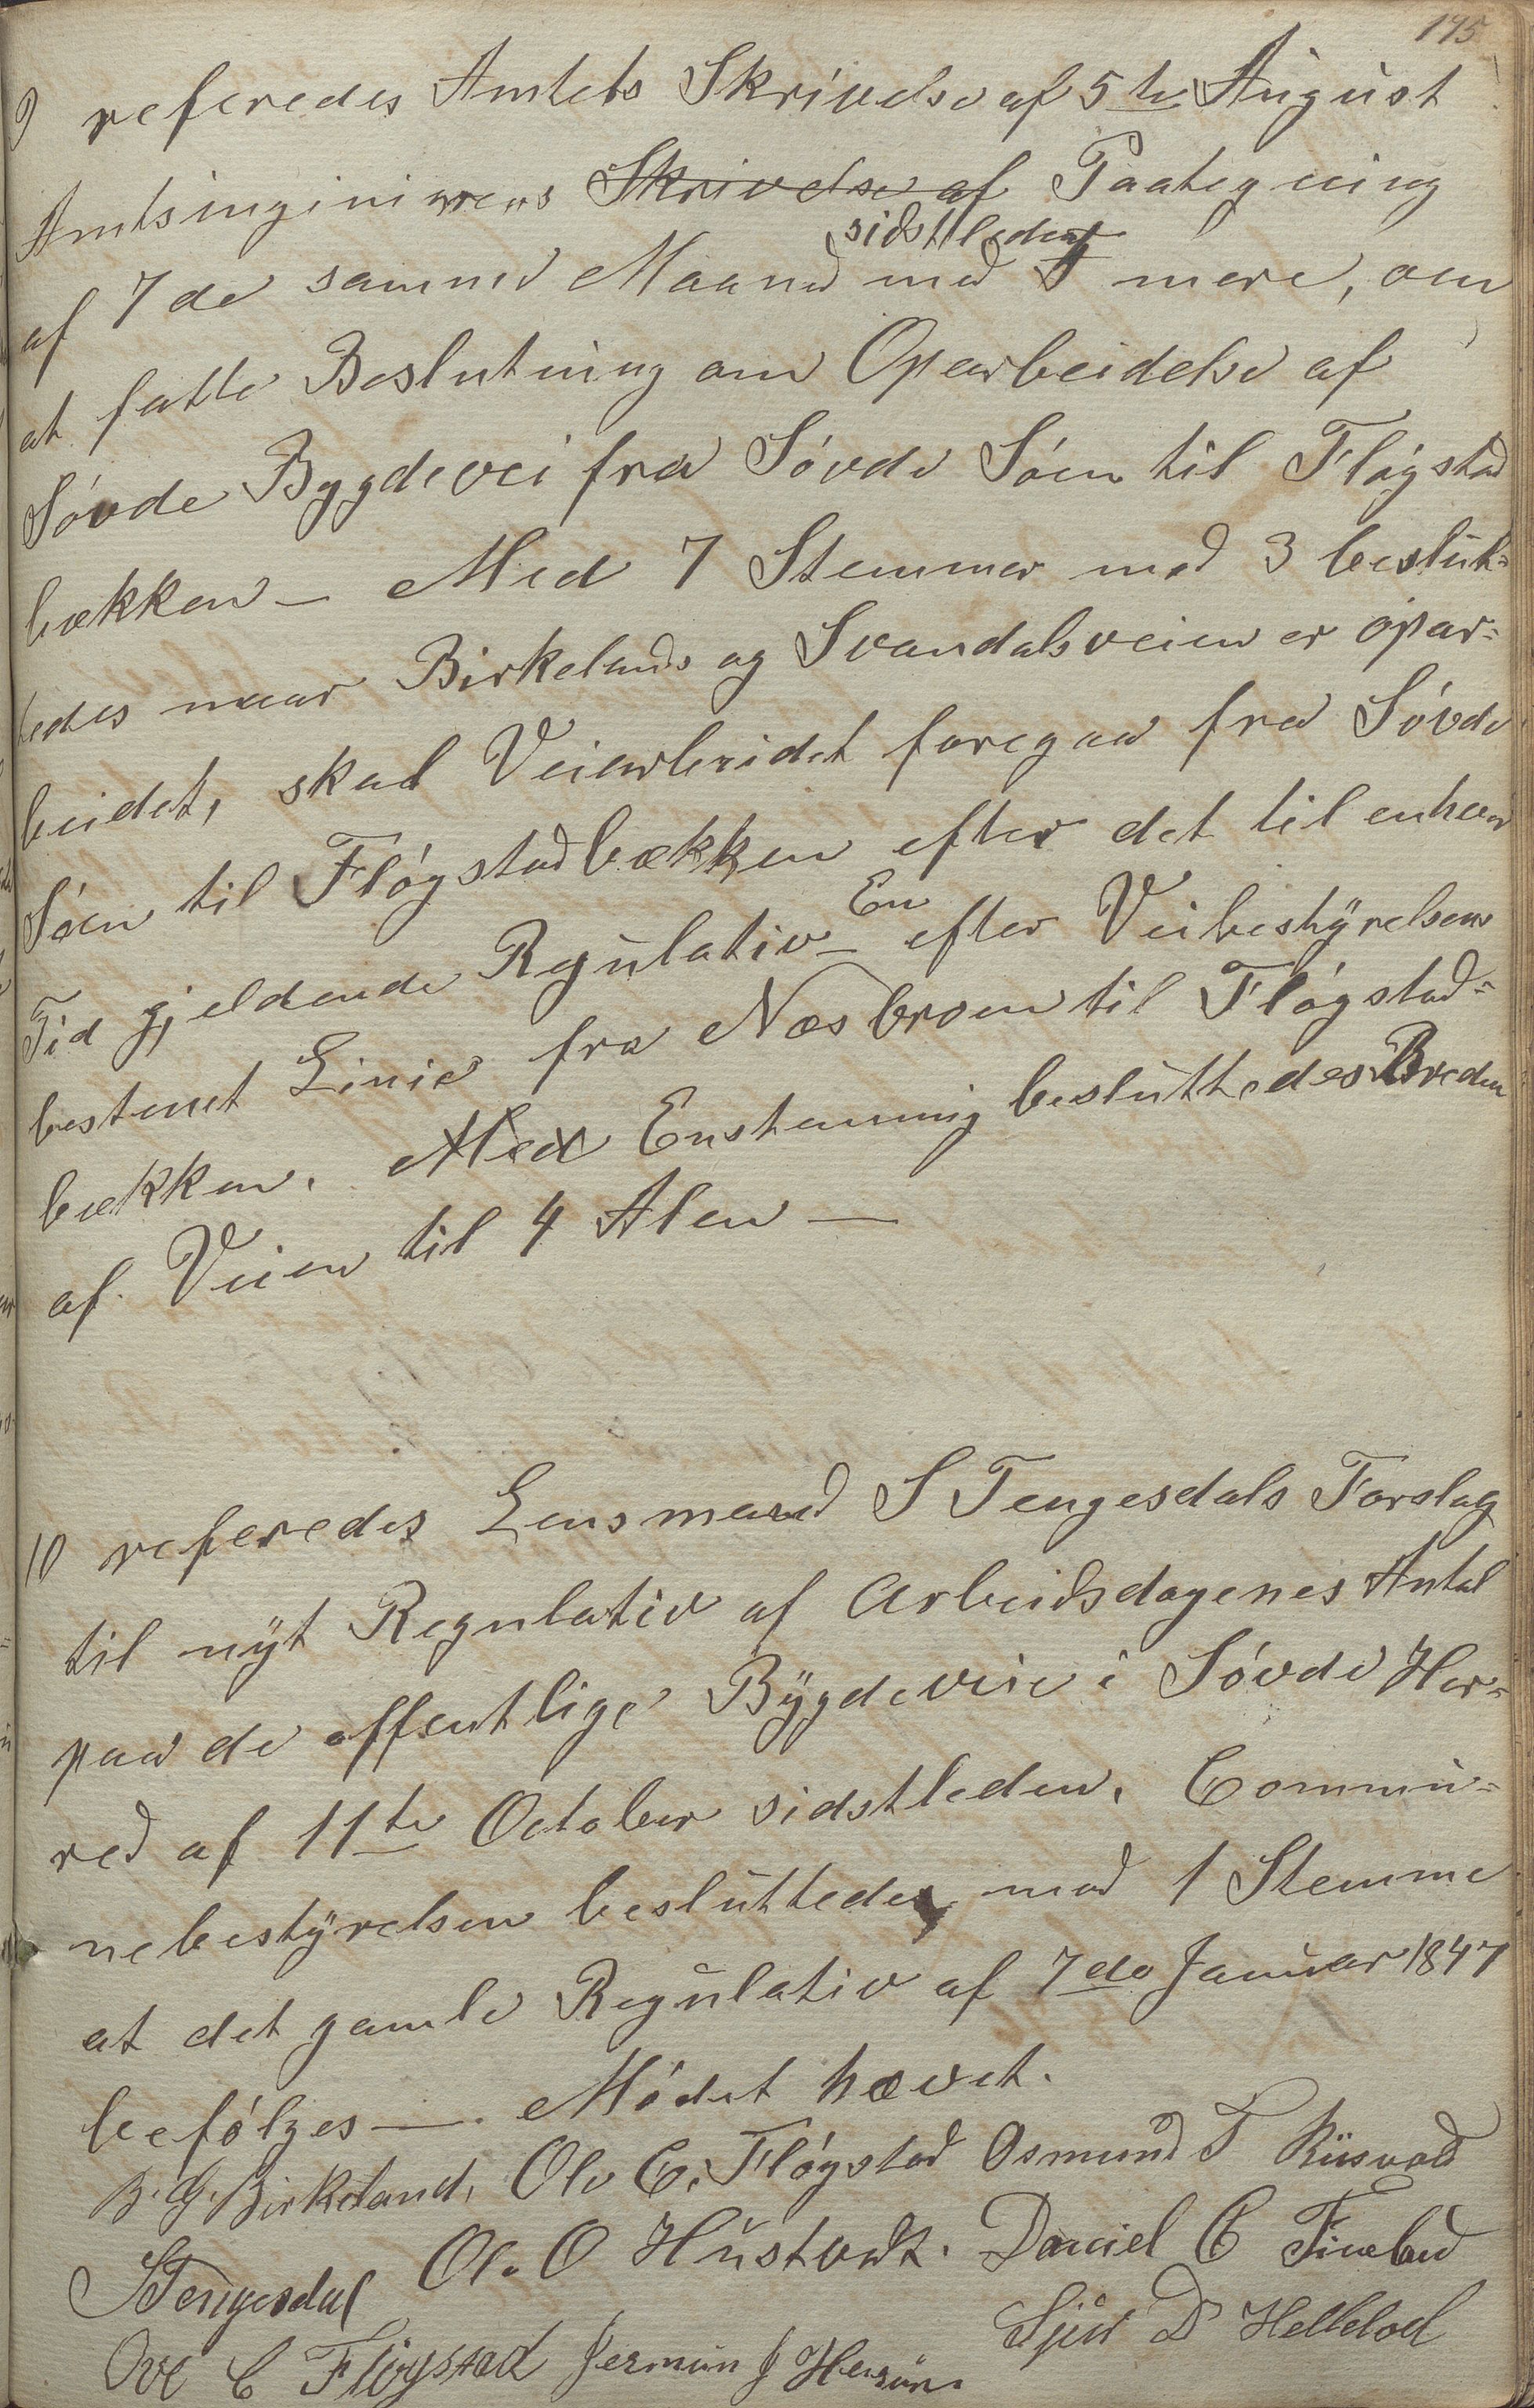 175
9 referedes Amtets Skrivelse af 5te August
sidstleden
Amtsinginiørens Skrivelse af Paategning
af 7de samme Maaned med mere, om
at fatte Beslutning om Oparbeidelse af
Søvde Bygdevei fra Søvde Søen til Fløgstad
bækken — Med 7 Stemmer mod 3 beslut=
tedes naar Birkelands og Svandalsveien er opar=
beidet, skal Veiarbeidet foregaa fra Søvde
Søen til Fløgstadbækken efter det til enhver
Tid gjeldende Regulativ — En efter Veibestÿrelsens
bestemt Linie fra Næsbroen til Fløgstad=
bækken. Med Enstemmig besluttedes Breden
af Veien til 4 Alen —
10 referedes Lensmand S Tengesdals Forslag
til nÿt Regulativ af Arbeidsdagenes Antal
paa de offentlige Bÿgdeveie i Søvde Her=
red af 11te October sidstleden. Commu=
nebestÿrelsen besluttede mod 1 Stemme
at det gamle Regulativ af 7de Januar 1847
befølges —. Mødet hævet.
B. G. Birkeland, Ole C. Fløgstad Osmund T Riisvad
STengesdal Ole O Hustvedt. Daniel C Tinebud
Ove C Fløgstad Jermun J Herum Sjur D Hellelod